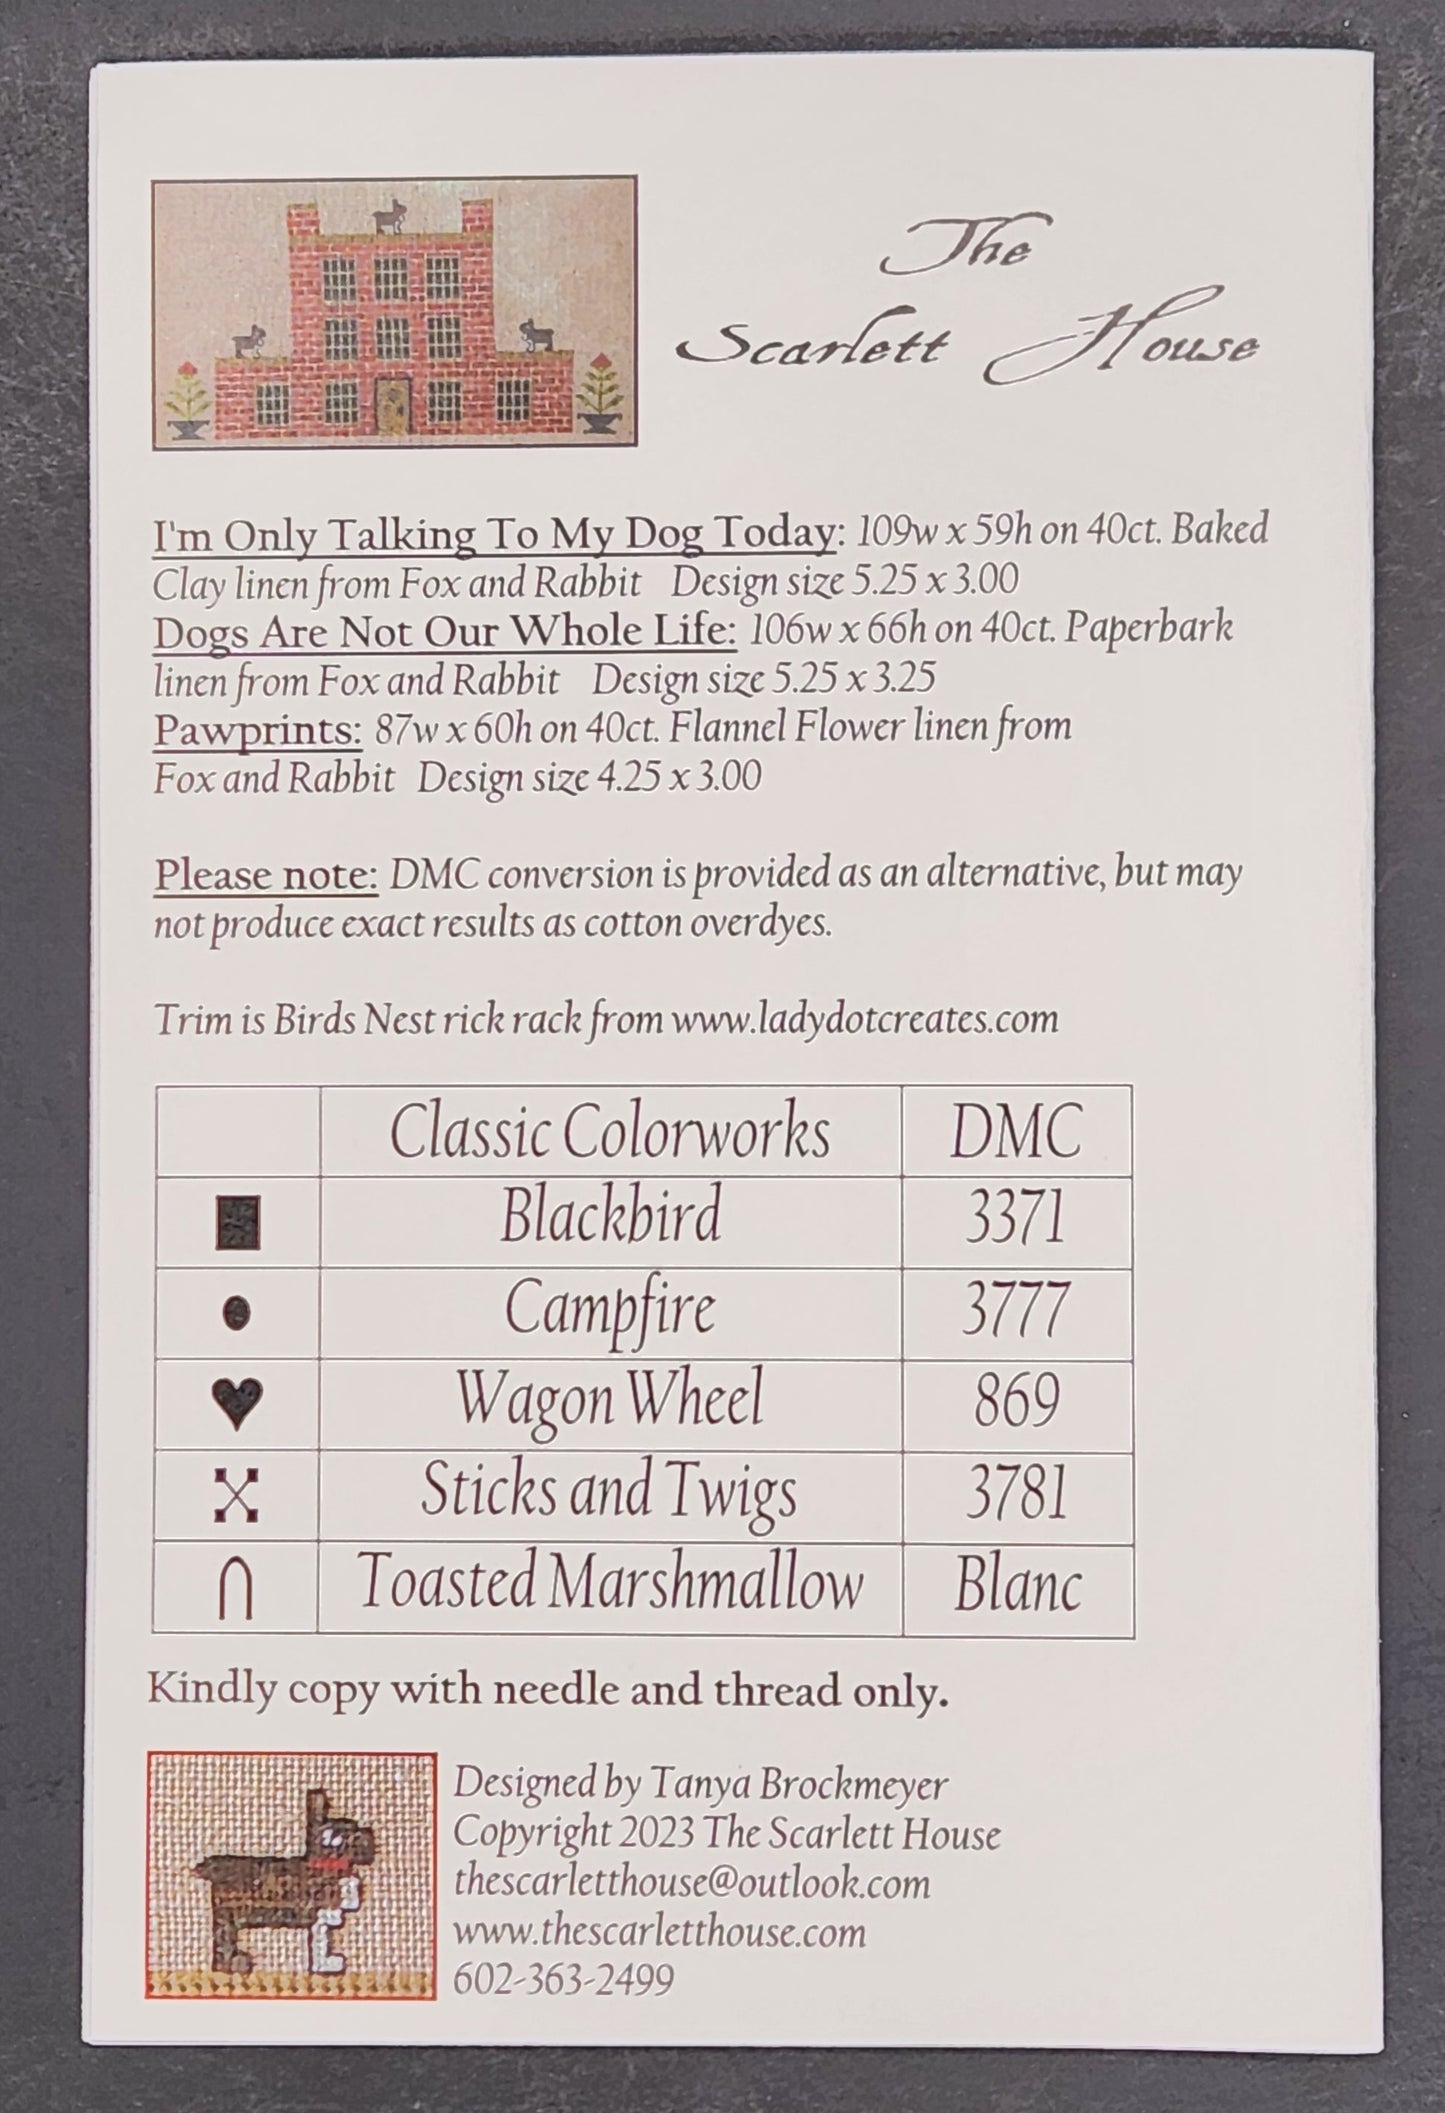 The
Scarlett House
I'm Only Talking To My Dog Today: 109w x 59h on 40ct. Baked
Clay linen from Fox and Rabbit Design size 5.25 x 3.00
Dogs Are Not Our Whole Life: 106w x 66h on 40ct. Paperbark
linen from Fox and Rabbit Design size 5.25 x 3.25
Pawprints: 87w x 60h on 40ct. Flannel Flower linen from
Fox and Rabbit Design size 4.25 x 3.00
Please note: DMC conversion is provided as an alternative, but may
not produce exact results as cotton overdyes.
Trim is Birds Nest rick rack from www.ladydotcreates.com
Classic Colorworks DMC
Blackbird 3371
Campfire 3777
Wagon Wheel 869
Sticks and Twigs 3781
Toasted Marshmallow Blanc
Kindly copy with needle and thread only.
Designed by Tanya Brockmeyer
Copyright 2023 The Scarlett House
thescarletthouse@outlook.com
www.thescarletthouse.com
602-363-2499